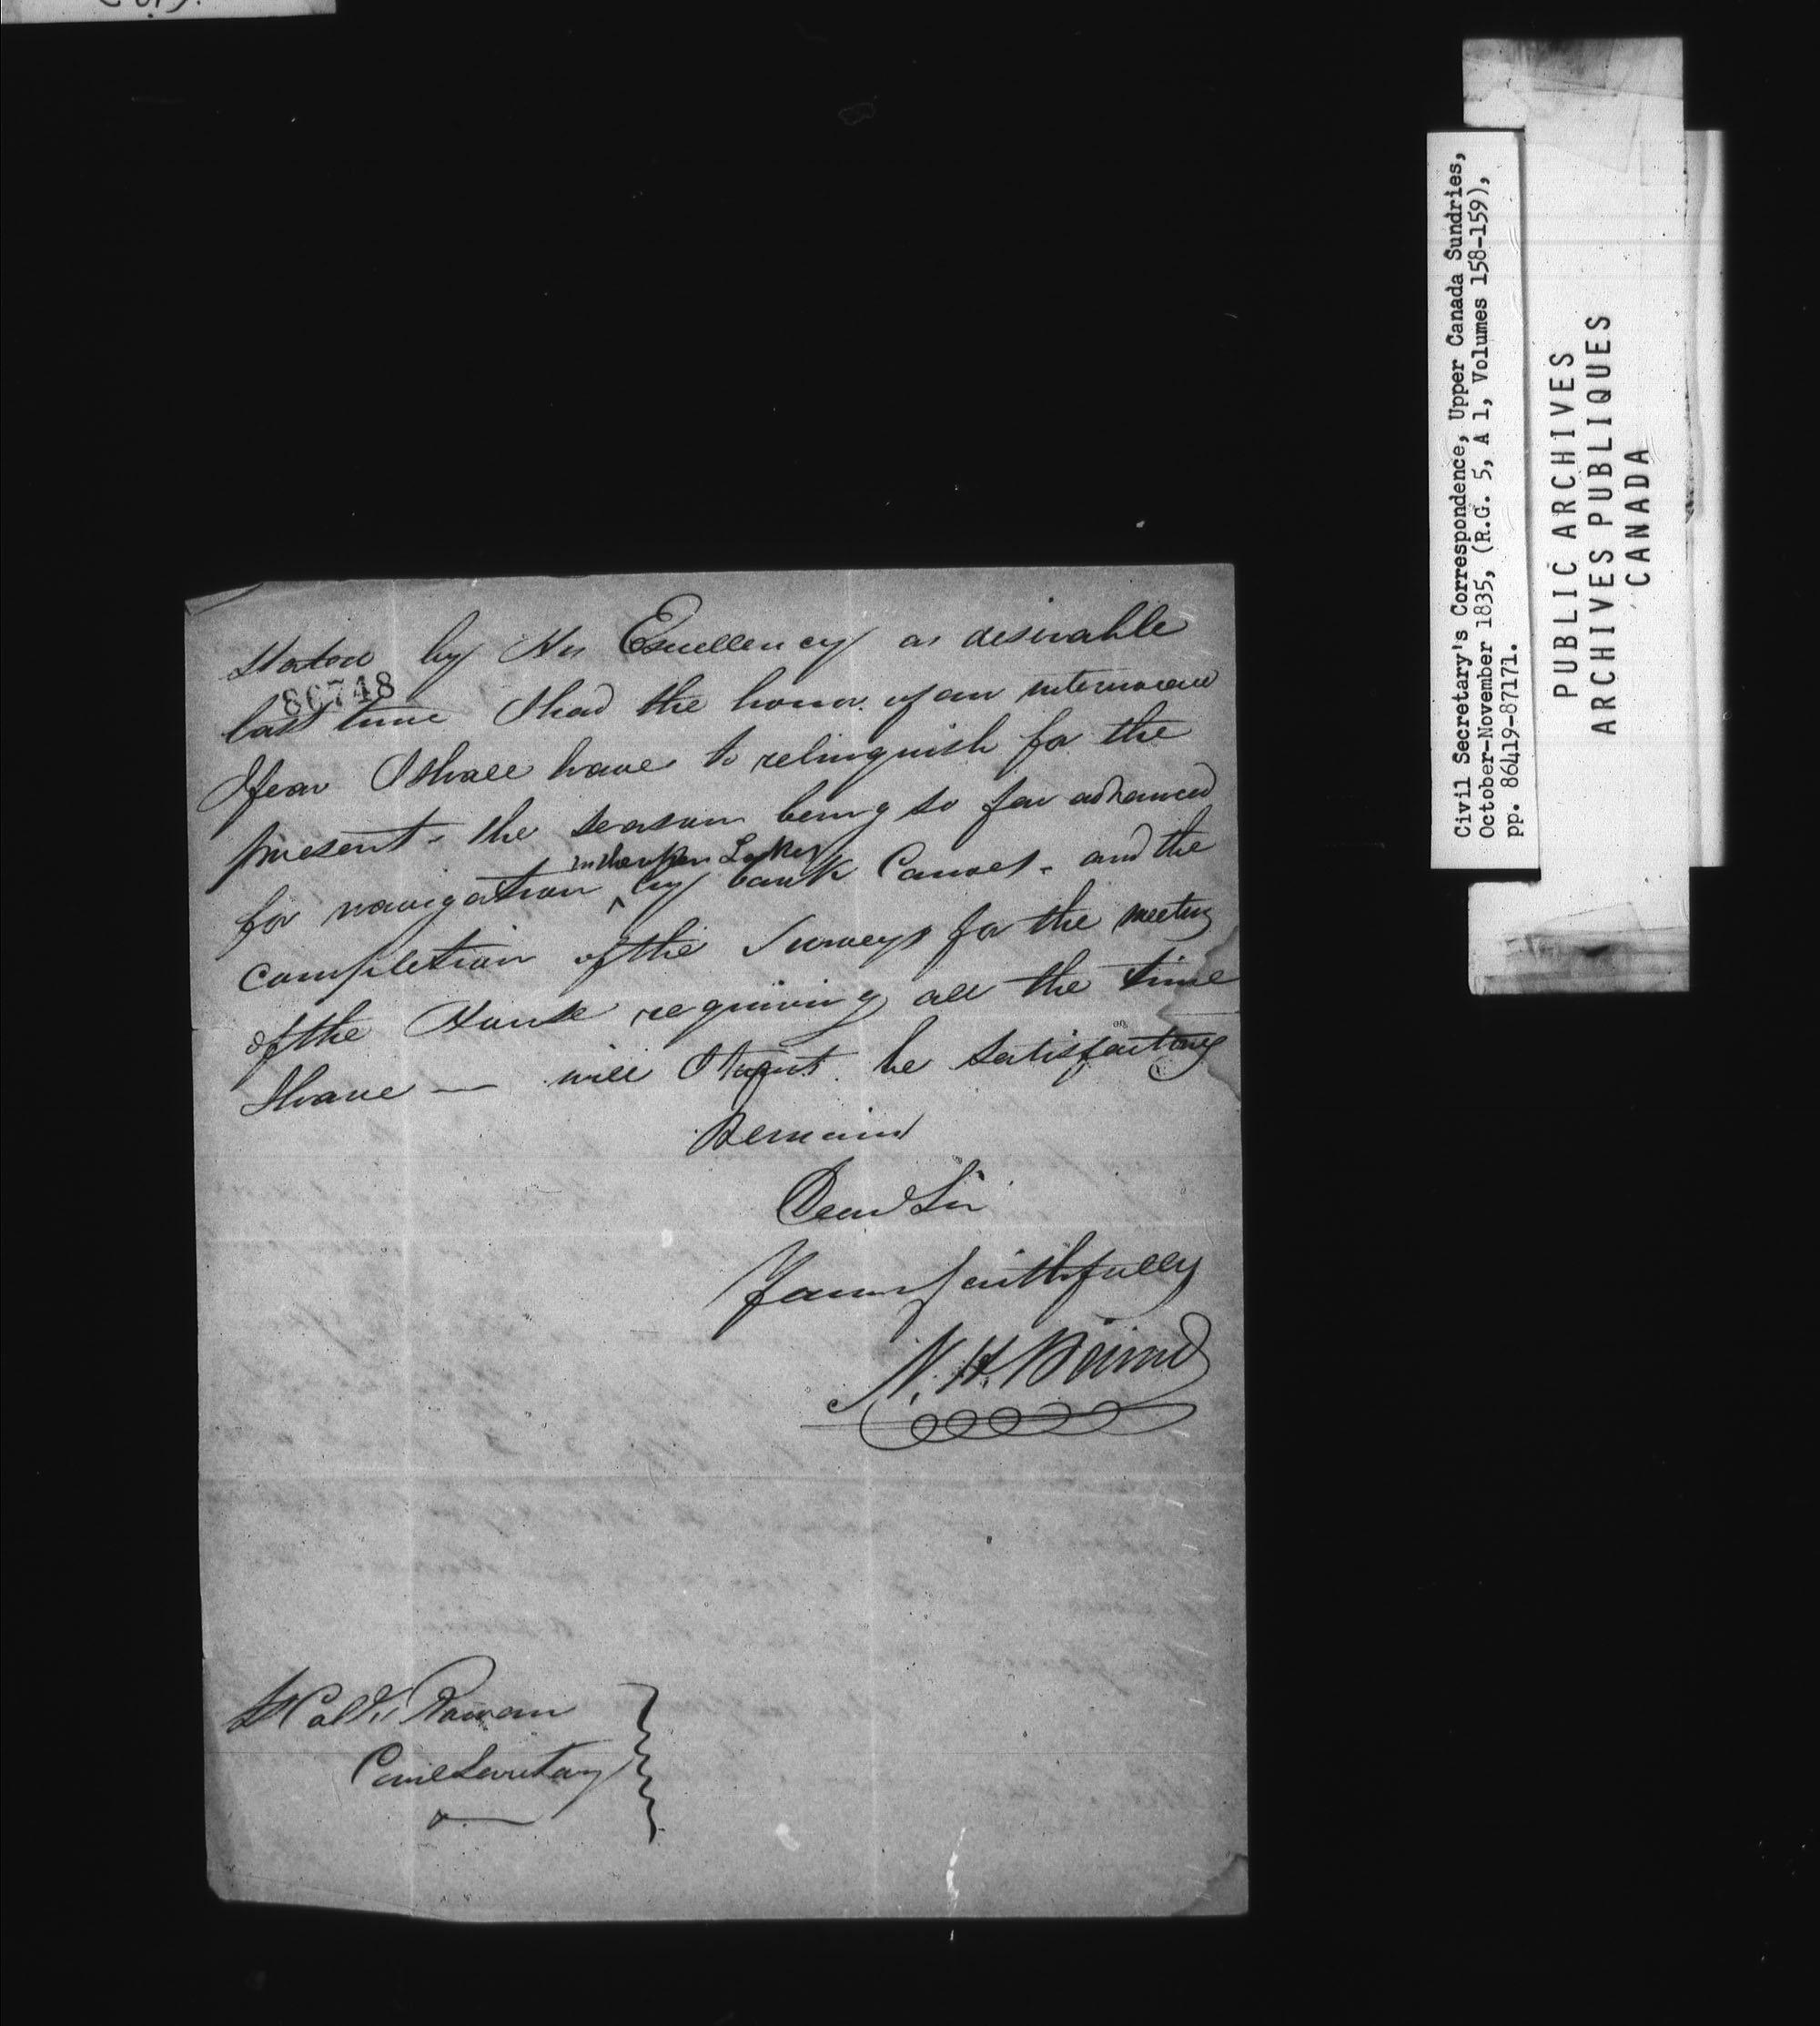 Stated by His Excellency as desirable
86748
last time I had the honor of an interview
I fear I shall have to relinquish for the
present - the season being so far advanced
in the upper Lakes
for navigation by bark Canoes - and the
completion of the Surveys for the meeting
of the House requiring all the time
I have — will I trust be satisfactory
Remain
Dear Sir
Yours faithfully
N. H. Baird
Lt Col Wm Rowan
Civil Secretary
Civil Secretary's Correspondence, Upper Canada Sundries,
October-November 1835, (R.G. 5, A 1, Volumes 158-159),
pp. 86419-87171.
PUBLIC ARCHIVES
ARCHIVES PUBLIQUES
CANADA